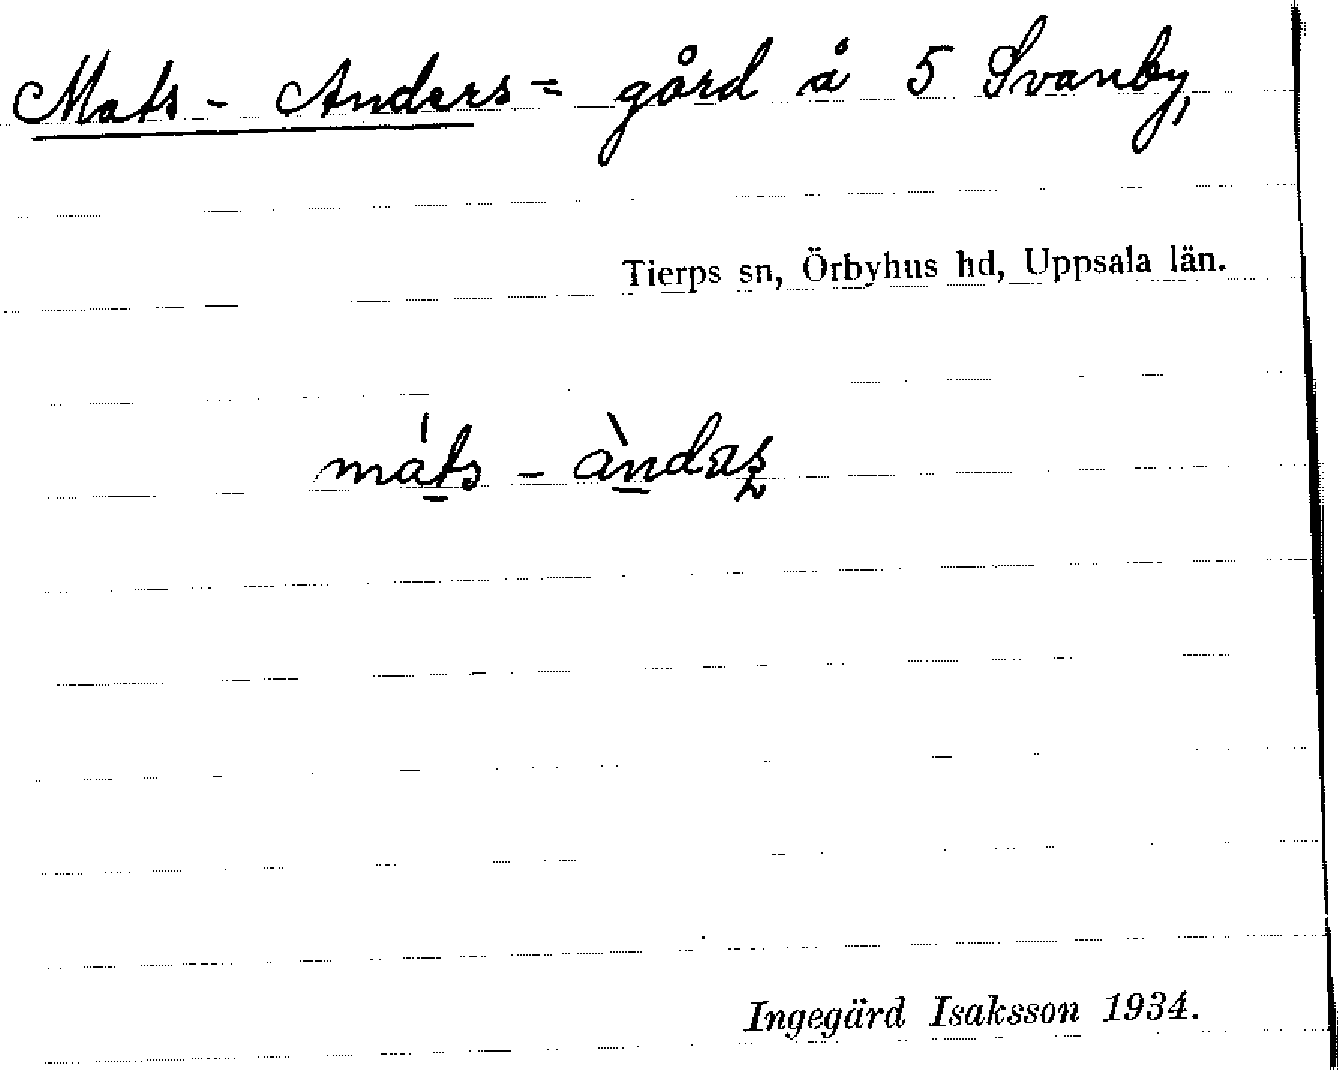 Mats - Anders = gård å 5 Svanby,
Tierps sn, Örbyhus hd, Uppsala län.
máts - àndaş
Ingegärd Isaksson 1934.